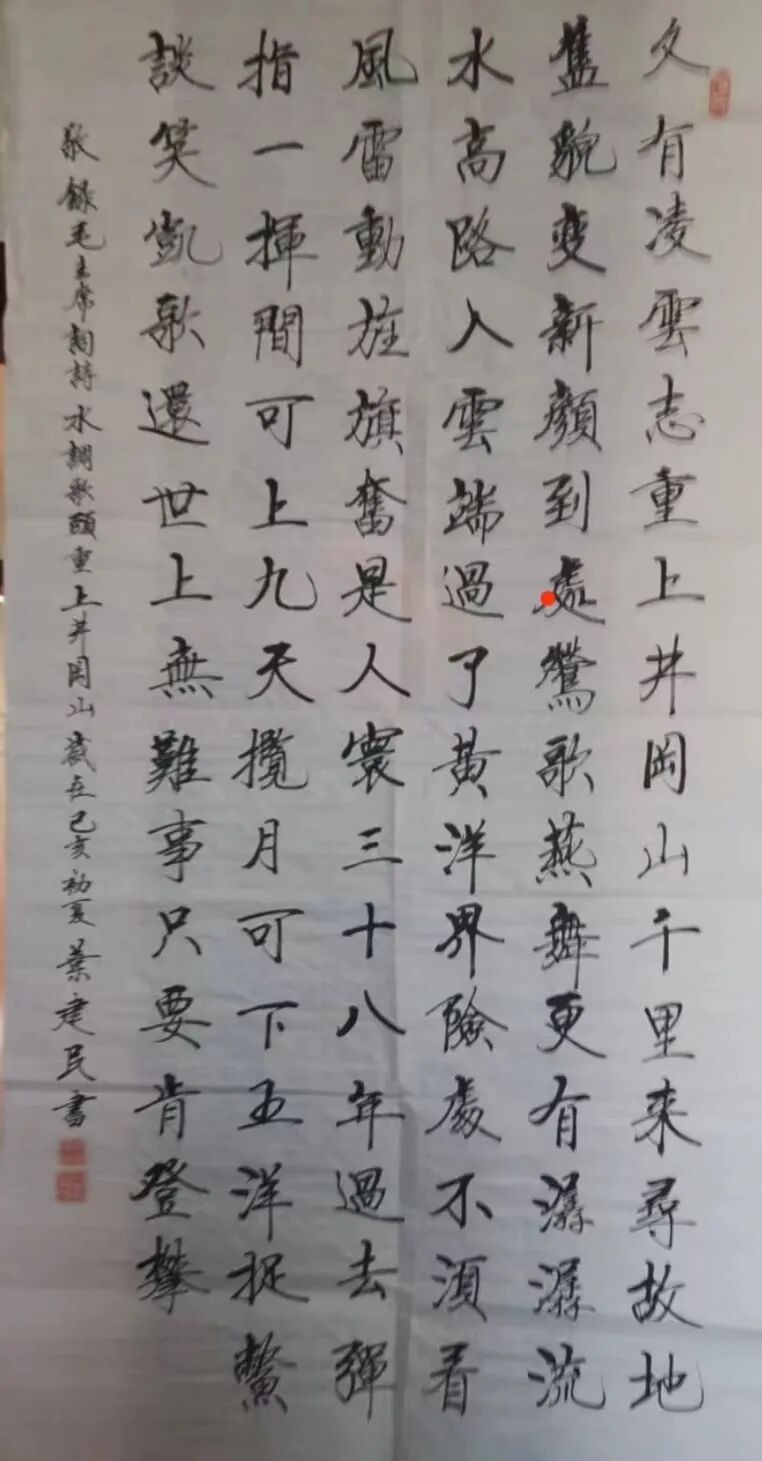 久有凌雲志重上井岡山千里来尋故地
舊貌變新顔到處鶯歌燕舞更有潺潺流
水高路入雲端過了黄洋界險處不須看
風雷動旌旗奮是人寰三十八年過去彈
指一揮間可上九天攬月可下五洋捉鱉
談笑凱歌還世上無難事只要肯登攀
敬録毛主席詞詩水調歌頭重上井岡山歲在己亥初夏葉建民書